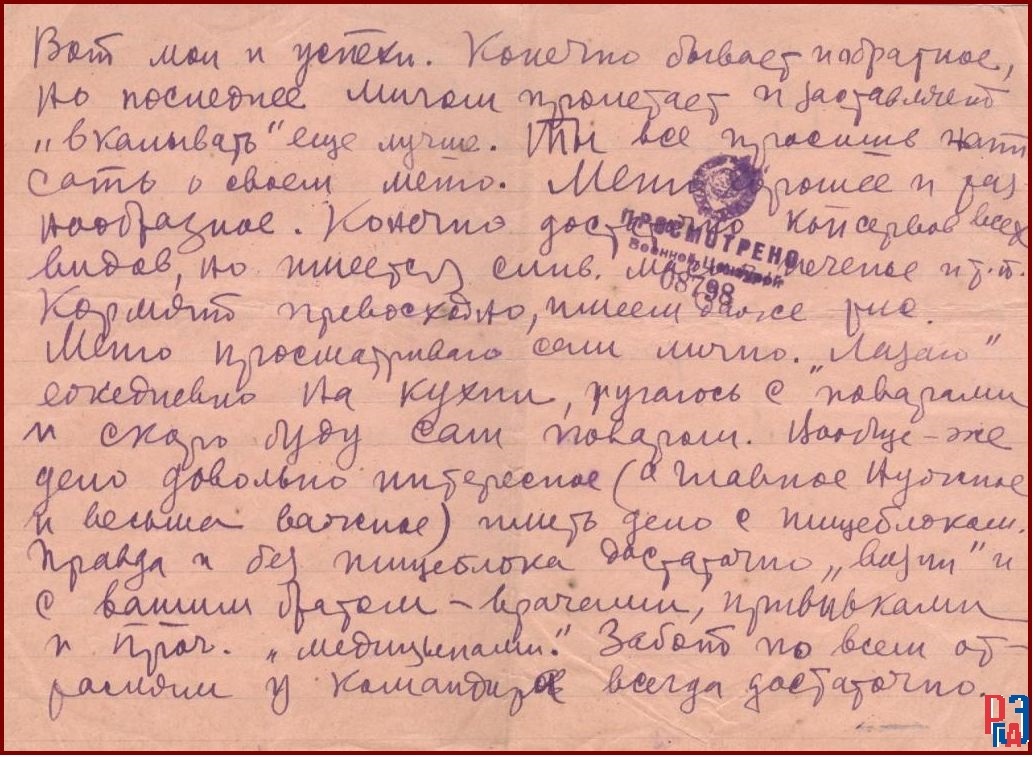 Вот мои и успехи. Конечно бывает и обратное,
но последнее мигом пролетает и заставляет
"вкалывать" еще лучше. Ты все просишь напи
сать о своем меню. Меню хорошее и раз
нообразное. Конечно достаточно консервов всех
видов, но имеется слив. масло, печенье и т.п.
Кормят превосходно, имеем даже рис.
Меню просматриваю сам лично. "Лазаю"
ежедневно на кухни, ругаюсь с поварами
и скоро буду сам поваром. Вообще-же
дело довольно интересное (а главное нужное
и весьма важное) иметь дело с пищеблоком.
Правда и без пищеблока достаточно "возни" и
с вашим братом - врачами, прививками
и проч. "медицынами". Забот по всем от-
раслям у командира всегда достаточно.
ПРОСМОТРЕНО
Военной Цензурой
08798
РГАЭ